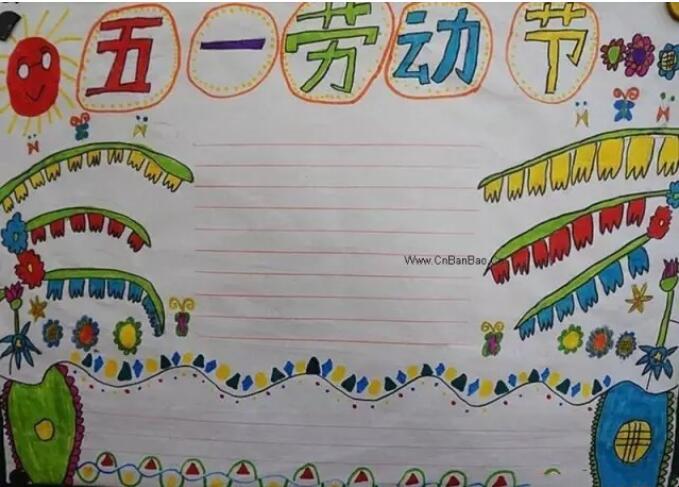 五一劳动节
Www.CnBanBao.